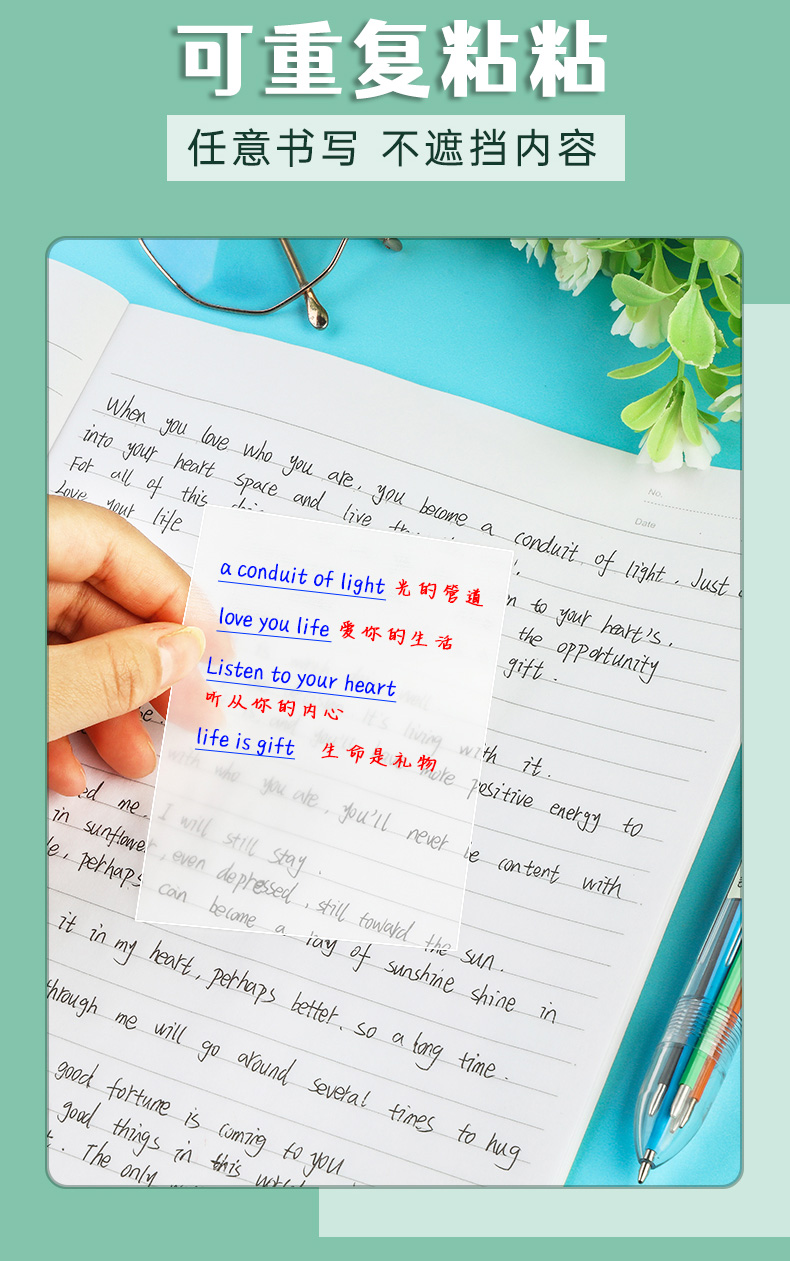 可重复粘粘
任意书写 不遮挡内容
No.
Date
When you love who you are, you become a conduit of light. Just
into your heart space and live
For all of this
Love your life
to your heart's.
the opportunity
gift.
a conduit of light 光的管道
love you life 爱你的生活
Listen to your heart
听从你的内心
life is gift 生命是礼物
it's living with it.
more positive energy to
with who you are, you'll never be content with
ed me.
I will still stay.
in sunflower, even depressed, still toward the sun.
perhaps can become a ray of sunshine shine in
it in my heart, perhaps better. so a long time.
through me will go around several times to hug
good fortune is coming to you
good things in this world
The only